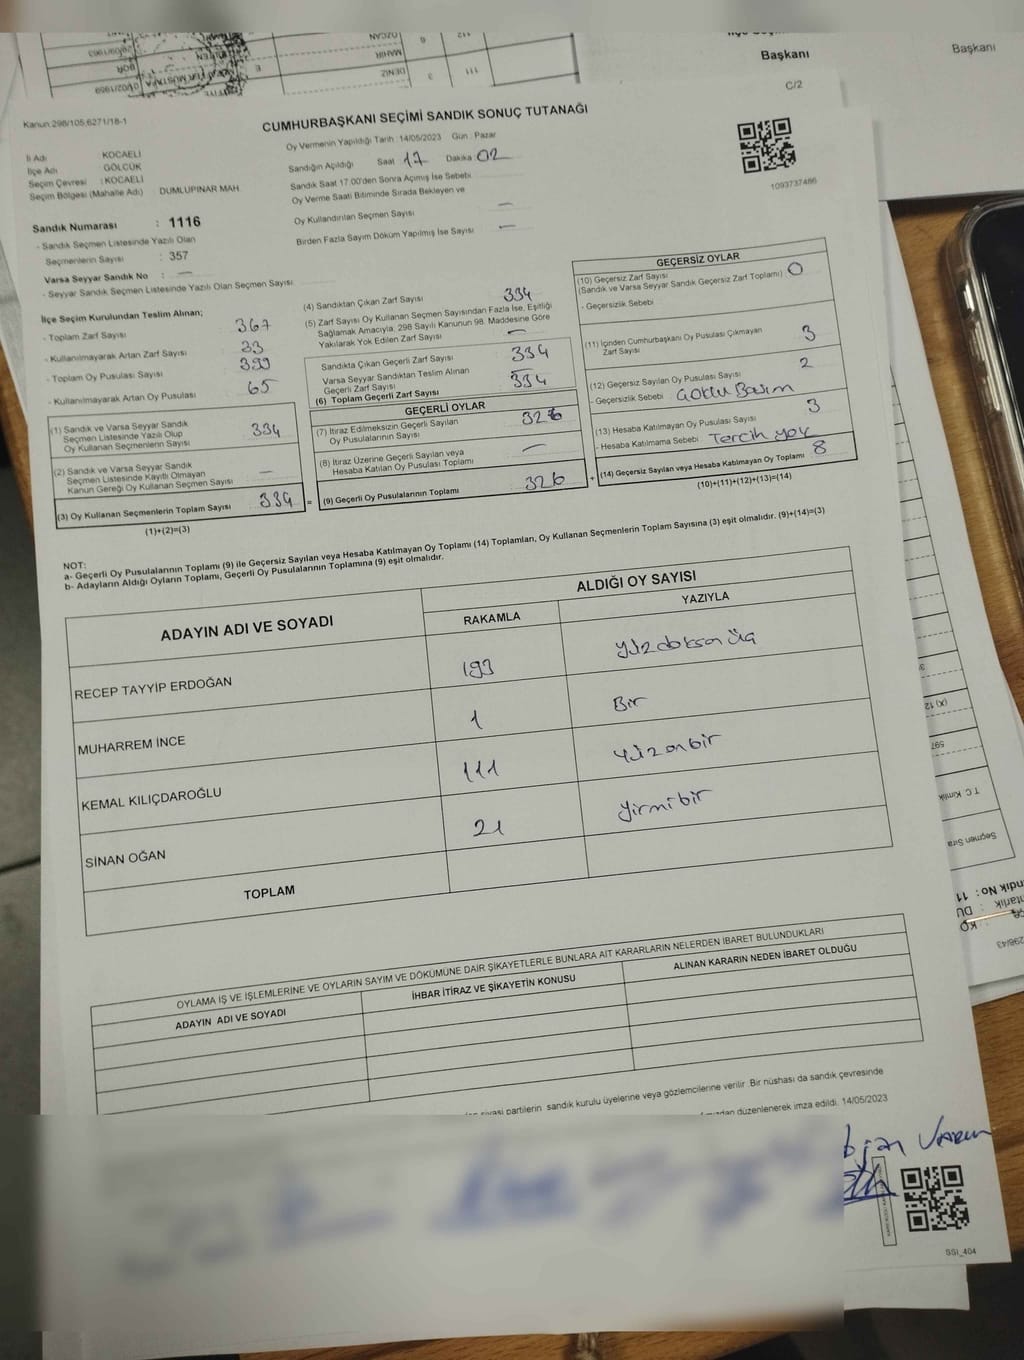 Başkanı
Başkanı
C/2
Kanun 298/105,6271/18-1
CUMHURBAŞKANI SEÇİMİ SANDIK SONUÇ TUTANAĞI
Oy Vermenin Yapıldığı Tarih :14/05/2023 Gün : Pazar
İl Adı : KOCAELİ
İlçe Adı : GÖLCÜK
Seçim Çevresi : KOCAELİ
Seçim Bölgesi (Mahalle Adı) DUMLUPINAR MAH.
Sandığın Açıldığı Saat 17 Dakika 02
Sandık Saat 17:00'den Sonra Açımış İse Sebebi
Oy Verme Saati Bitiminde Sırada Bekleyen ve
Oy Kullandırılan Seçmen Sayısı —
Birden Fazla Sayım Döküm Yapılmış İse Sayısı —
1093737486
Sandık Numarası : 1116
- Sandık Seçmen Listesinde Yazılı Olan
Seçmenlerin Sayısı : 357
Varsa Seyyar Sandık No : —
- Seyyar Sandık Seçmen Listesinde Yazılı Olan Seçmen Sayısı
İlçe Seçim Kurulundan Teslim Alınan;
- Toplam Zarf Sayısı 367
- Kullanılmayarak Artan Zarf Sayısı 33
- Toplam Oy Pusulası Sayısı 399
- Kullanılmayarak Artan Oy Pusulası 65
(1) Sandık ve Varsa Seyyar Sandık
Seçmen Listesinde Yazılı Olup
Oy Kullanan Seçmenlerin Sayısı 334
(2) Sandık ve Varsa Seyyar Sandık
Seçmen Listesinde Kayıtlı Olmayan
Kanun Gereği Oy Kullanan Seçmen Sayısı —
(3) Oy Kullanan Seçmenlerin Toplam Sayısı 334 =
(1)+(2)=(3)
(4) Sandıktan Çıkan Zarf Sayısı 334
(5) Zarf Sayısı Oy Kullanan Seçmen Sayısından Fazla İse, Eşitliği
Sağlamak Amacıyla, 298 Sayılı Kanunun 98. Maddesine Göre
Yakılarak Yok Edilen Zarf Sayısı —
Sandıkta Çıkan Geçerli Zarf Sayısı 334
Varsa Seyyar Sandıktan Teslim Alınan
Geçerli Zarf Sayısı —
(6) Toplam Geçerli Zarf Sayısı 334
GEÇERLİ OYLAR
(7) İtiraz Edilmeksizin Geçerli Sayılan
Oy Pusulalarının Sayısı 326
(8) İtiraz Üzerine Geçerli Sayılan veya
Hesaba Katılan Oy Pusulası Toplamı —
(9) Geçerli Oy Pusulalarının Toplamı 326 +
GEÇERSİZ OYLAR
(10) Geçersiz Zarf Sayısı
(Sandık ve Varsa Seyyar Sandık Geçersiz Zarf Toplamı) 0
- Geçersizlik Sebebi
(11) İçinden Cumhurbaşkanı Oy Pusulası Çıkmayan
Zarf Sayısı 3
(12) Geçersiz Sayılan Oy Pusulası Sayısı 2
- Geçersizlik Sebebi Çoklu Basım
(13) Hesaba Katılmayan Oy Pusulası Sayısı 3
- Hesaba Katılmama Sebebi Tercih yok
(14) Geçersiz Sayılan veya Hesaba Katılmayan Oy Toplamı 8
(10)+(11)+(12)+(13)=(14)
NOT:
a- Geçerli Oy Pusulalarının Toplamı (9) ile Geçersiz Sayılan veya Hesaba Katılmayan Oy Toplamı (14) Toplamları, Oy Kullanan Seçmenlerin Toplam Sayısına (3) eşit olmalıdır. (9)+(14)=(3)
b- Adayların Aldığı Oyların Toplamı, Geçerli Oy Pusulalarının Toplamına (9) eşit olmalıdır.
ADAYIN ADI VE SOYADI
ALDIĞI OY SAYISI
RAKAMLA YAZIYLA
RECEP TAYYİP ERDOĞAN 193 yüzdoksan üç
MUHARREM İNCE 1 Bir
KEMAL KILIÇDAROĞLU 111 Yüzonbir
SİNAN OĞAN 21 yirmibir
TOPLAM
OYLAMA İŞ VE İŞLEMLERİNE VE OYLARIN SAYIM VE DÖKÜMÜNE DAİR ŞİKAYETLERLE BUNLARA AİT KARARLARIN NELERDEN İBARET BULUNDUKLARI
ADAYIN ADI VE SOYADI İHBAR İTİRAZ VE ŞİKAYETİN KONUSU ALINAN KARARIN NEDEN İBARET OLDUĞU
siyasi partilerin sandık kurulu üyelerine veya gözlemcilerine verilir. Bir nüshası da sandık çevresinde
düzenlenerek imza edildi. 14/05/2023
SSI_404